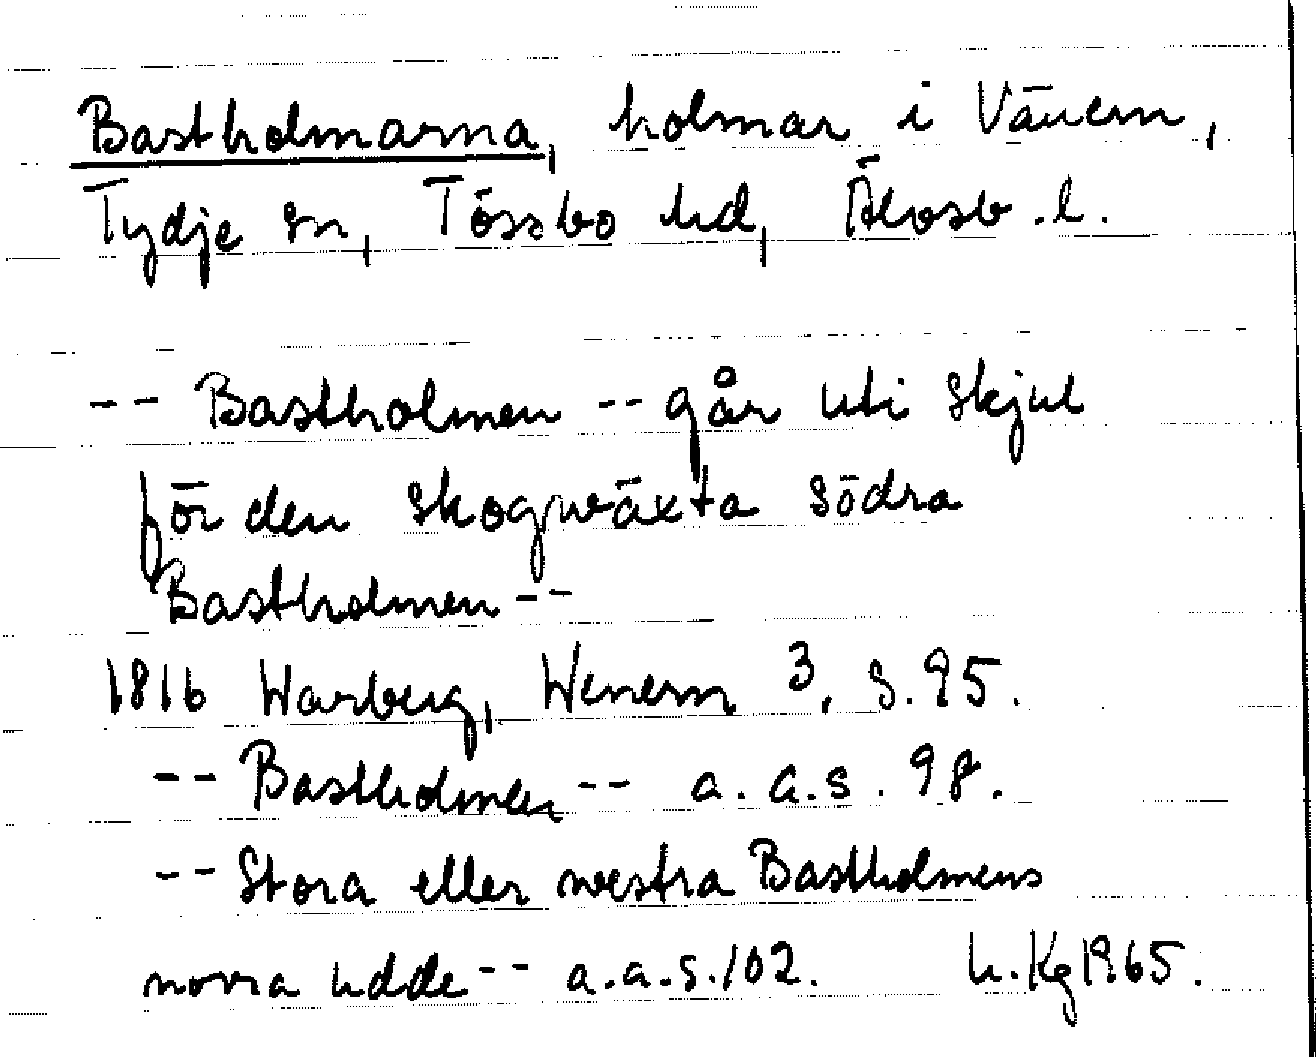 Bastholmarna, holmar i Vänern,
Tydje sn, Tössbo hd, Älvsb. l.
-- Bastholmen -- går uti skjul
för den skogwäxta södra
Bastholmen --
1816 Warberg, Wenern 3, s. 95.
-- Bastholmen -- a. a. s. 98.
-- Stora eller westra Bastholmens
norra udde -- a. a. s. 102. h. Kg 1965.